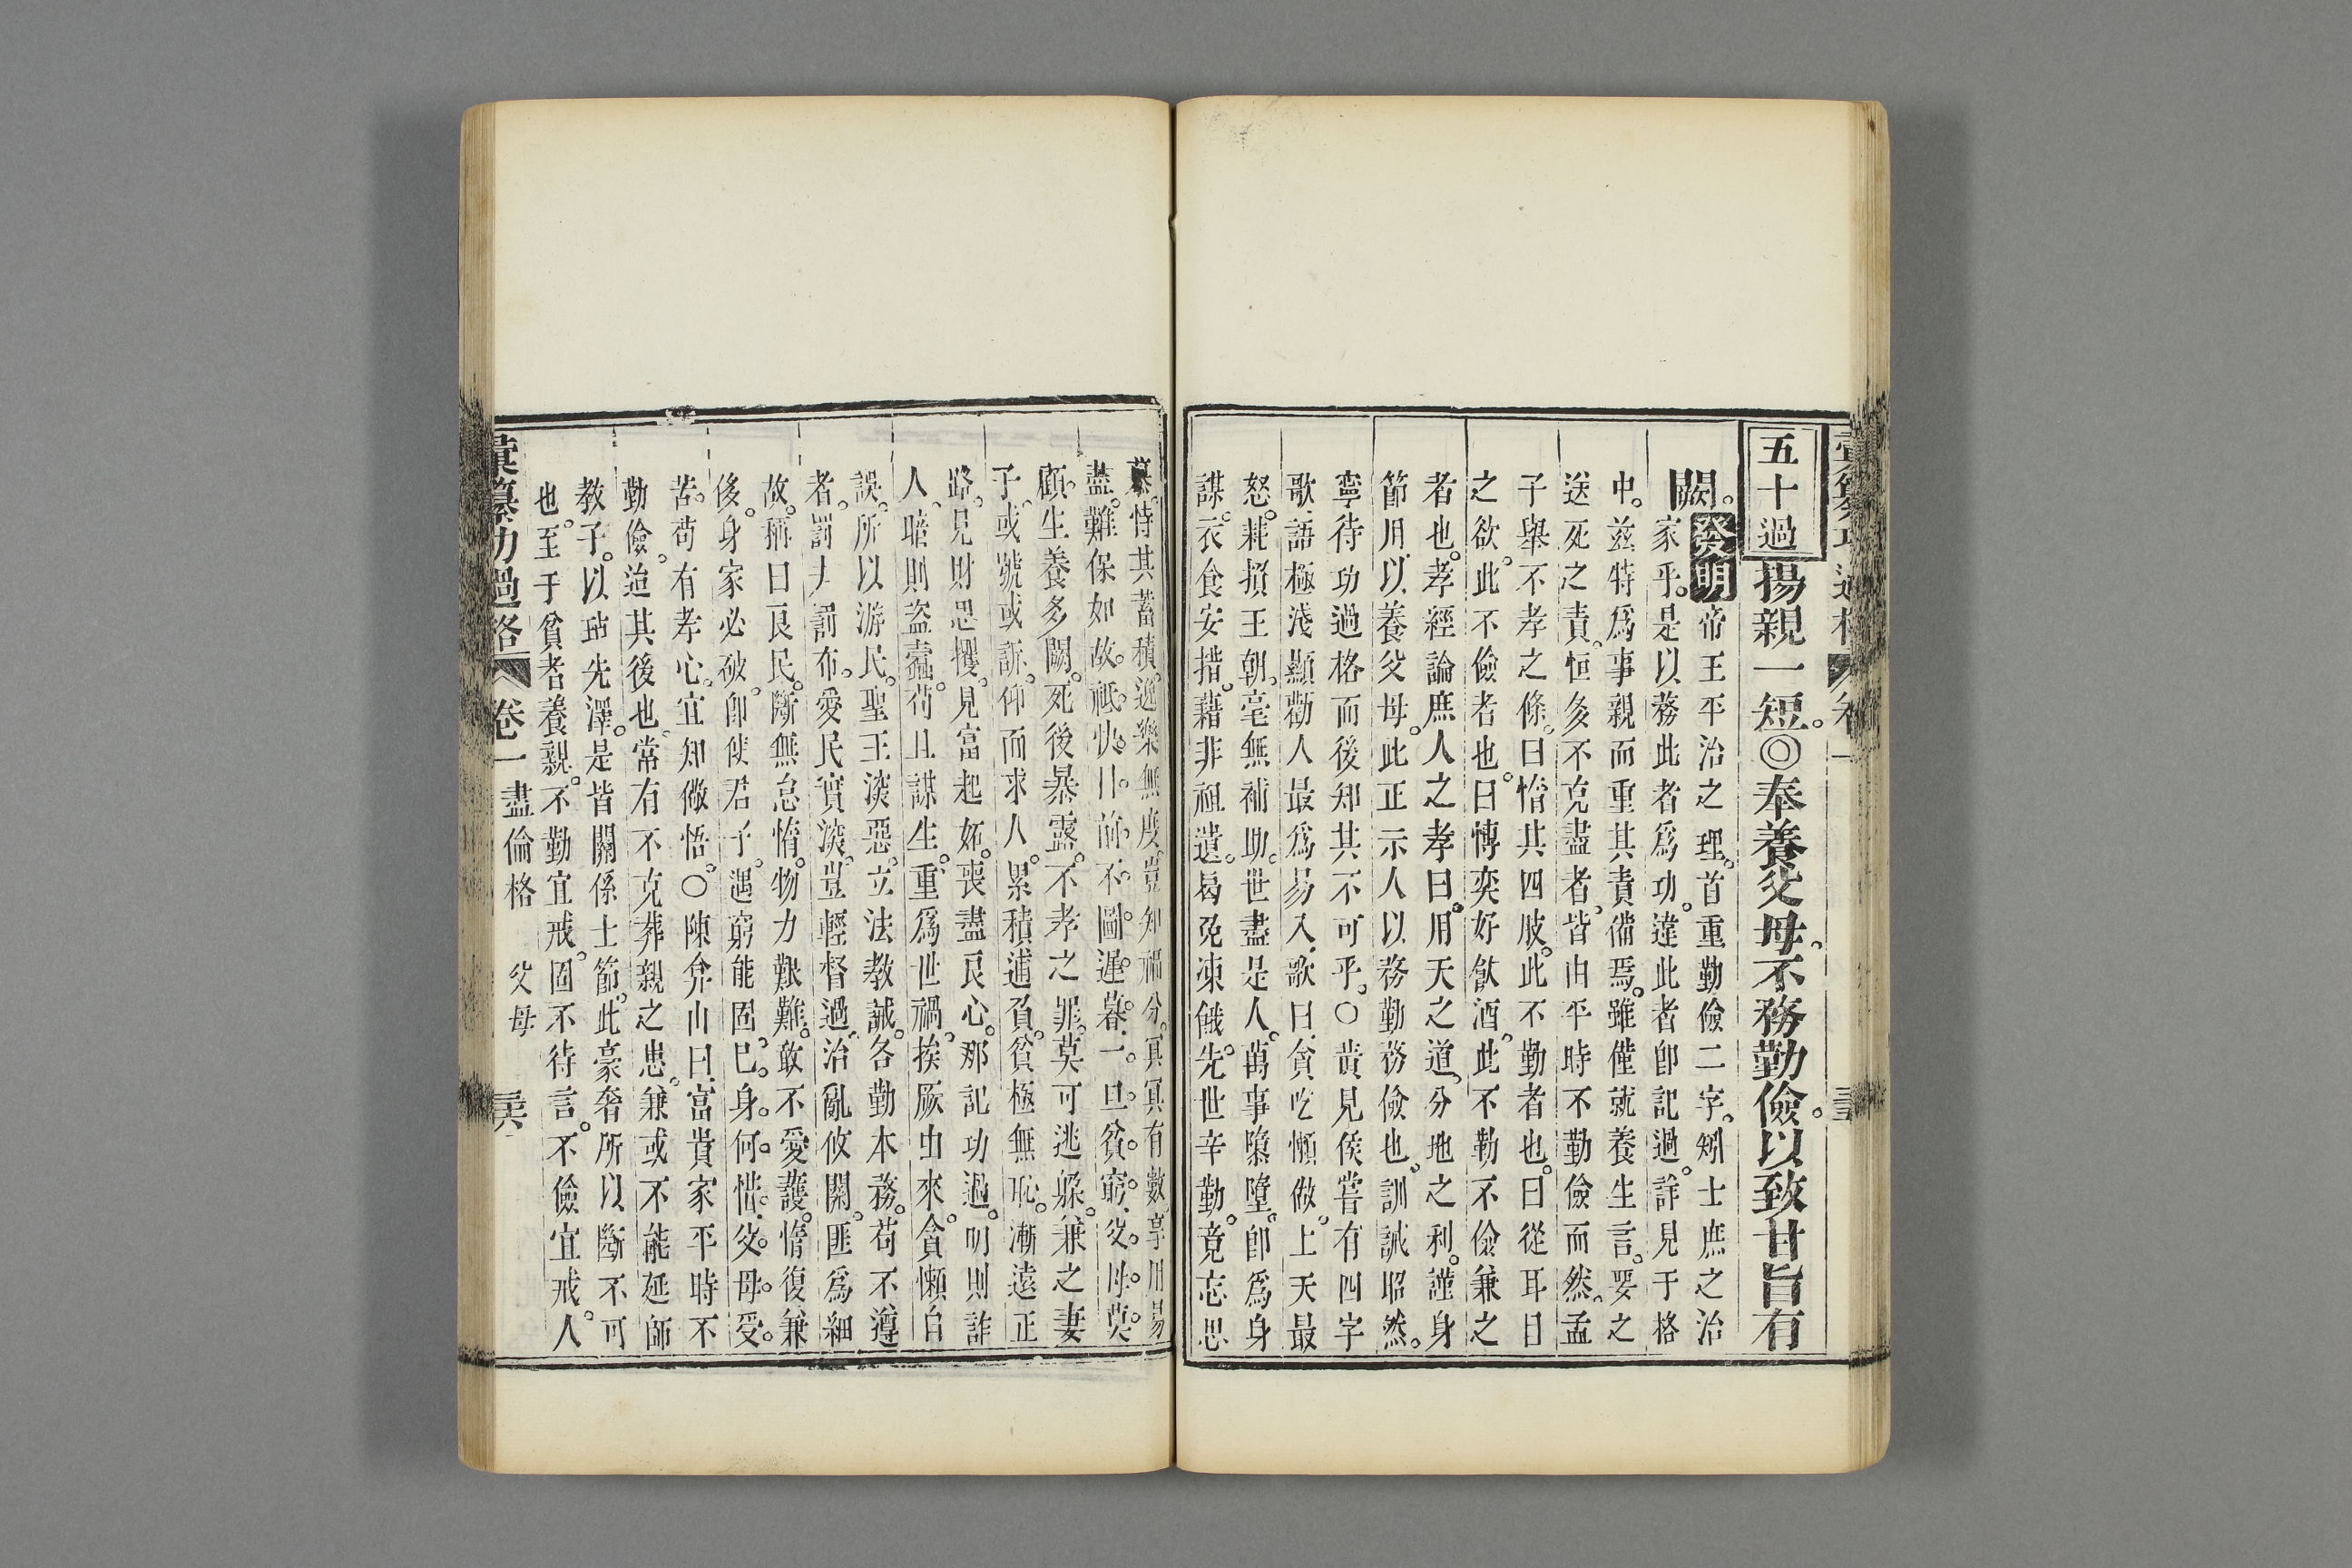 五十過揚親一短。◎奉養父母、不務勤儉。以致甘旨有
闕。發明帝王平治之理。首重勤儉二字。矧士庶之治
家乎。是以務此者爲功。違此者卽記過。詳見于格
中。兹特爲事親而重其責備焉。雖僅就養生言。要之
送死之責。恒多不克盡者、皆由平時不勤儉而然。孟
子舉不孝之條。曰惰其四肢。此不勤者也。曰從耳目
之欲。此不儉者也。曰博奕好飲酒。此不勤不儉兼之
者也。孝經論庶人之孝曰。用天之道、分地之利。謹身
節用、以養父母。此正示人以務勤務儉也。訓誡昭然。
寧待功過格而後知其不可乎。○黃見侯嘗有四字
歌、語極淺顯、勸人最爲易入、歌曰、貪吃懶做。上天最
怒。耗損王朝。毫無補助。世盡是人。萬事隳墮。卽爲身
謀。衣食安措。藉非祖遺。曷免凍餓。先世辛勤。竟忘思
慕。恃其蓄積。逸樂無度。豈知福分。冥冥有數。享用易
盡。難保如故。祗快目前。不圖遲暮。一旦貧窮。父母莫
顧。生養多闕。死後暴露。不孝之罪。莫可逃躲。兼之妻
子。或號或訴。仰而求人。累積逋負。貧極無恥。漸遠正
路。見財思攫。見富起妬。喪盡良心。那記功過。明則詐
人、暗則盜蠹。苟且謀生。重爲世禍。挨厥由來。貪懶自
誤。所以游民。聖王深惡。立法教誡。各勤本務。苟不遵
者。罰夫罰布。愛民實深。豈輕督過。治亂攸關。匪爲細
故。稱曰良民。斷無怠惰。物力艱難。敢不愛護。惰復兼
侈。身家必破。卽使君子。遇窮能固。已身何惜。父母受
苦。苟有孝心。宜知儆悟。○陳弁山曰、富貴家平時不
勤儉。迨其後也。常有不克葬親之患。兼或不能延師
教子。以玷先澤。是皆關係士節。此豪奢所以斷不可
也。至于貧者養親。不勤宜戒。固不待言。不儉宜戒。人
彙纂功過格 卷一 盡倫格 父母 三六